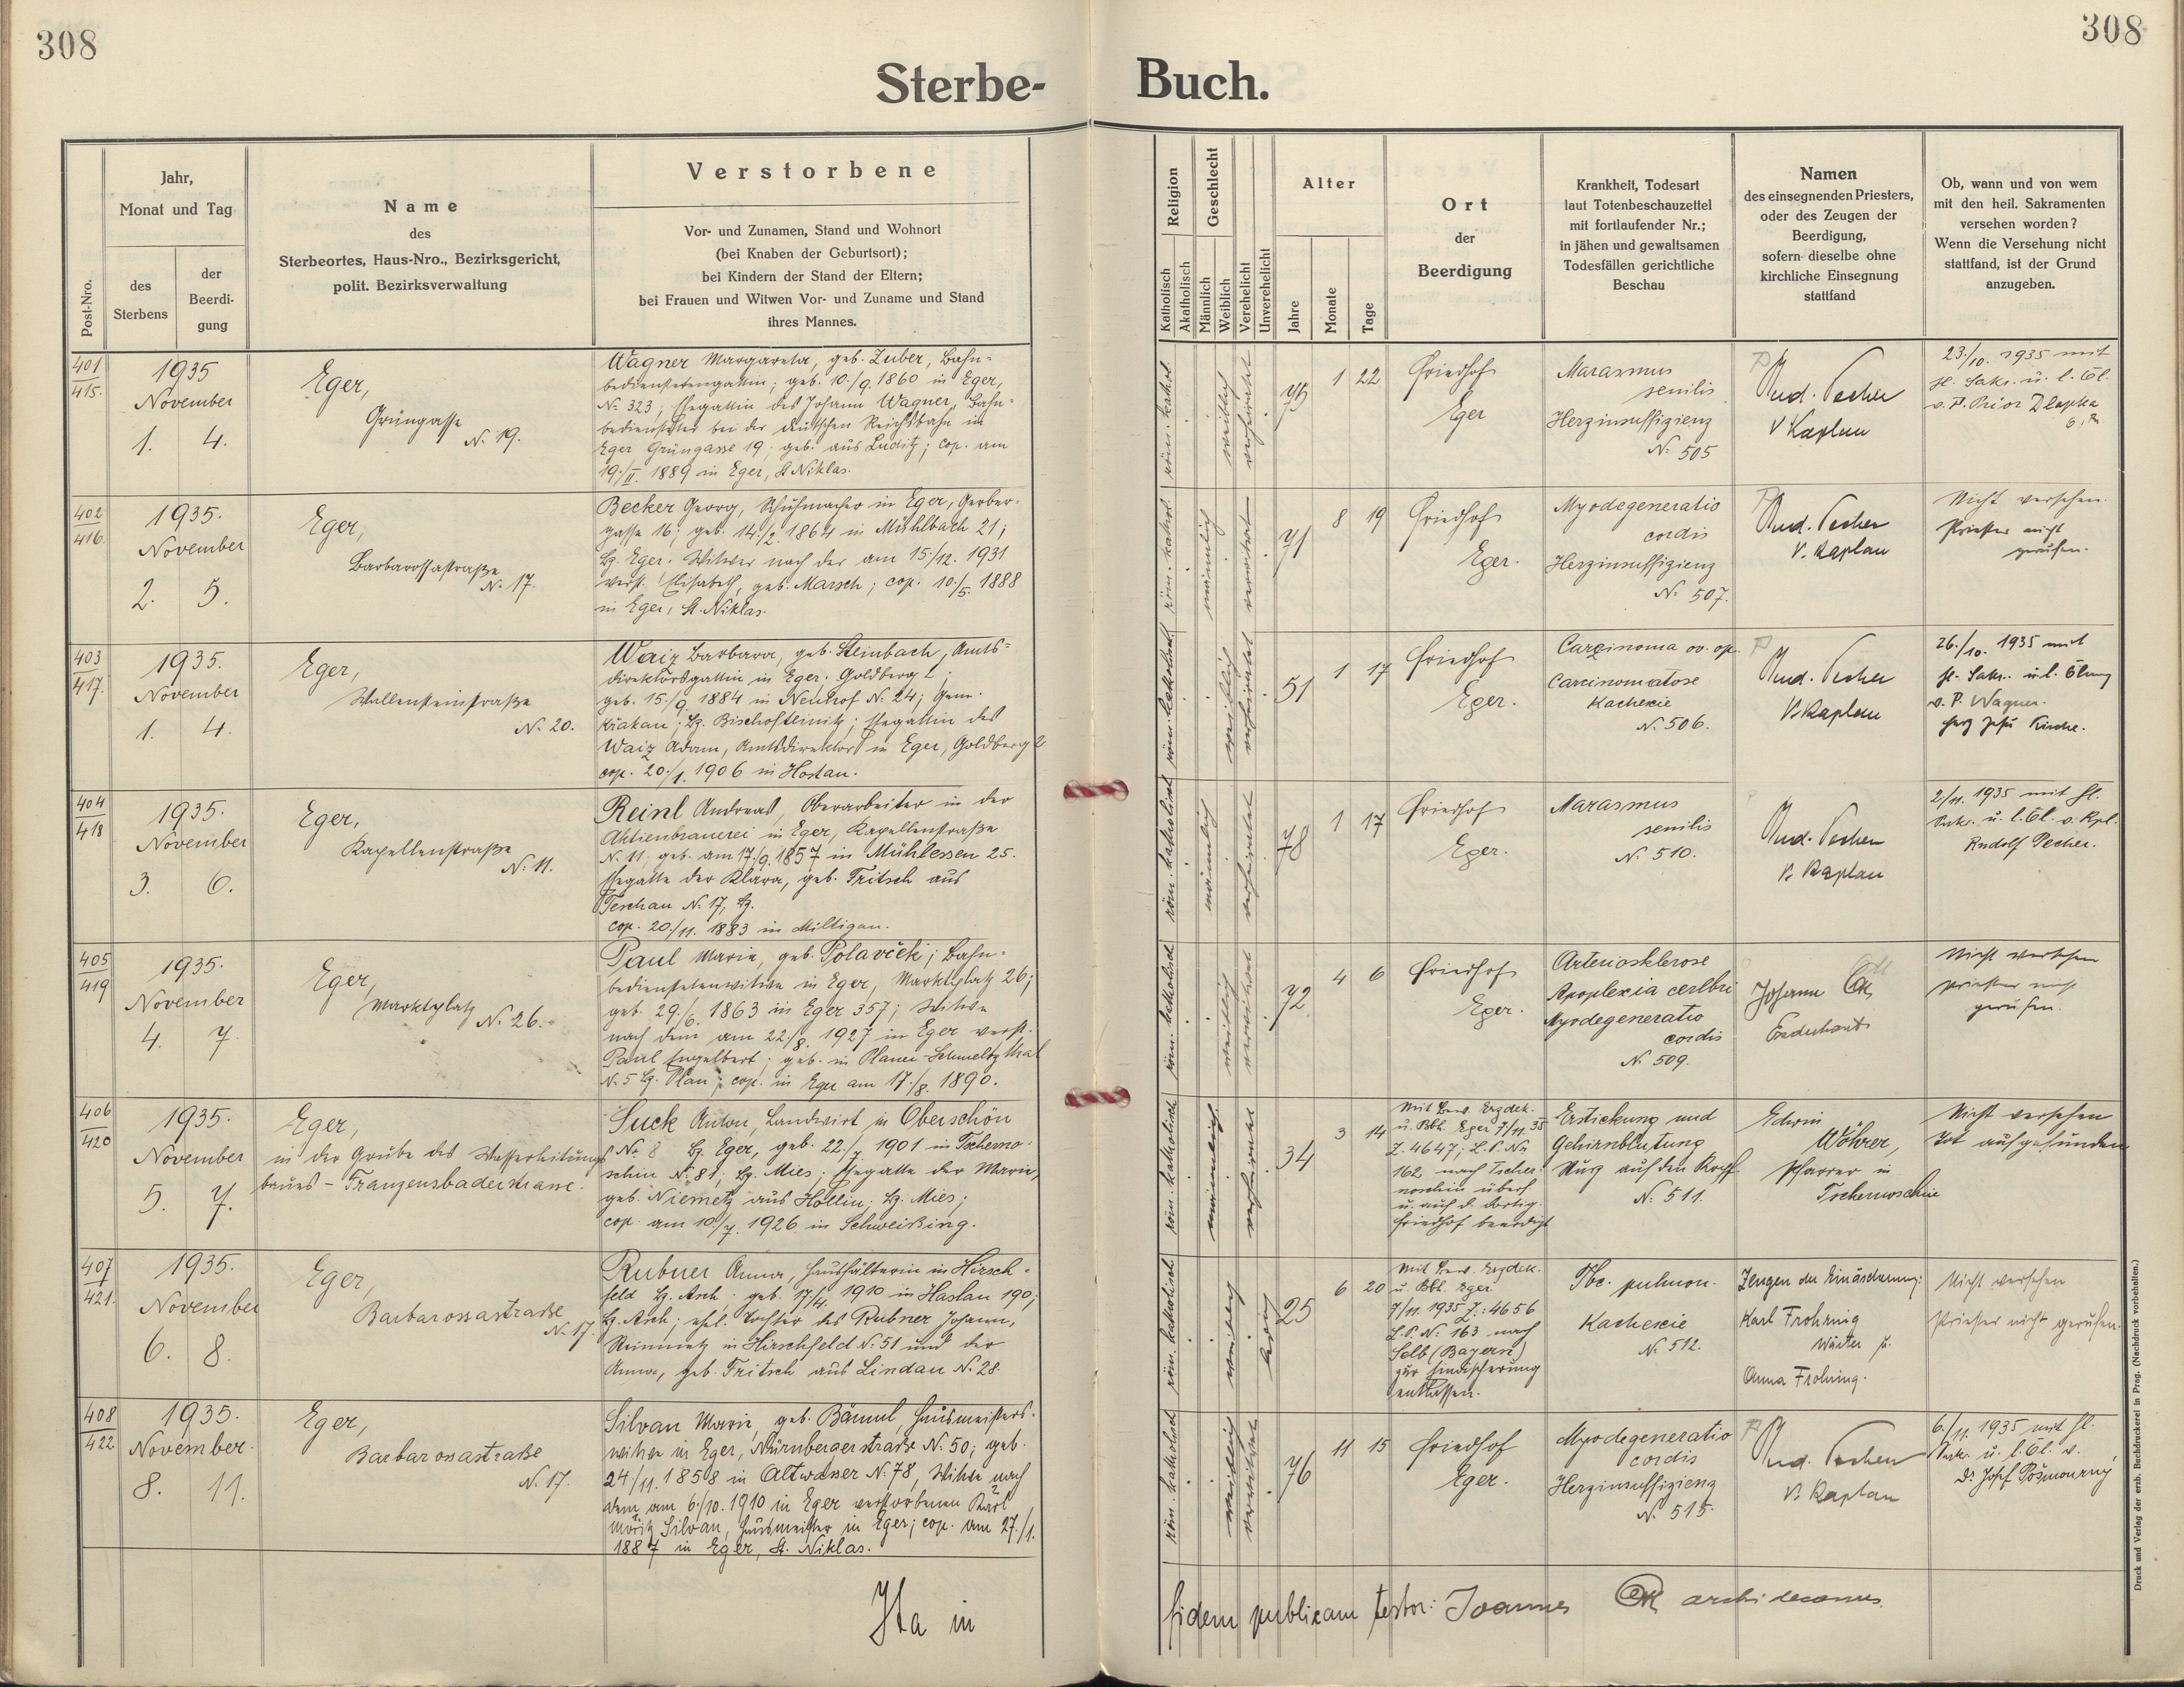 308
308
Sterbe-
Buch.
Post-Nro.
Jahr,
Monat und Tag
des
Sterbens
der
Beerdi-
gung
Name
des
Sterbeortes, Haus-Nro., Bezirksgericht,
polit. Bezirksverwaltung
Verstorbene
Vor- und Zunamen, Stand und Wohnort
(bei Knaben der Geburtsort);
bei Kindern der Stand der Eltern;
bei Frauen und Witwen Vor- und Zuname und Stand
ihres Mannes.
Religion
Katholisch
Akatholisch
Geschlecht
Männlich
Weiblich
Verehelicht
Unverehelicht
Alter
Jahre
Monate
Tage
Ort
der
Beerdigung
Krankheit, Todesart
laut Totenbeschauzettel
mit fortlaufender Nr.;
in jähen und gewaltsamen
Todesfällen gerichtliche
Beschau
Namen
des einsegnenden Priesters,
oder des Zeugen der
Beerdigung,
sofern dieselbe ohne
kirchliche Einsegnung
stattfand
Ob, wann und von wem
mit den heil. Sakramenten
versehen worden?
Wenn die Versehung nicht
stattfand, ist der Grund
anzugeben.
401
415.
1935
November
1. 4.
Eger,
Grüngasse
N. 19.
Wagner Margareta, geb. Zuber, Bahn-
bedienstetengattin; geb. 10./9. 1860 in Eger,
N. 323; Ehegattin des Johann Wagner, Bahn-
bediensteter bei der deutschen Reichsbahn in
Eger Grüngasse 19; geb. aus Luditz; cop. am
19./II. 1889 in Eger, St Niklas.
röm. kathol.
weiblich
verheiratet
75 1 22
Friedhof
Eger
Marasmus
senilis
Herzinsuffizienz
N. 505
Rud. Pecher
V Kaplan
23./10. 1935 mit
hl. Sakr. u. l. Öl.
v. P. Prior Dlapka
402
416.
1935.
November
2. 5.
Eger,
Barbarossastraße
N. 17.
Becker Georg, Schuhmacher in Eger, Gerber-
gasse 16; geb. 14./2. 1864 in Mühlbach 21;
Bz. Eger. Witwer nach der am 15./12. 1931
verst. Elisabeth, geb. Marsch; cop. 10./5. 1888
in Eger, St. Niklas.
röm. kathol.
männlich
verwitwet
71 8 19
Friedhof
Eger.
Myodegeneratio
cordis
Herzinsuffizienz
N. 507.
Rud. Pecher
V. Kaplan
Nicht versehen.
Priester nicht
gerufen.
403
417.
1935.
November
1. 4.
Eger,
Wallensteinstraße
N. 20.
Waiz Barbara, geb. Steinbach, Amts-
direktorsgattin in Eger, Goldberg 2;
geb. 15./9. 1884 in Neuhof N. 24; Gem.
Krakau; Bz. Bischofteinitz; Ehegattin des
Waiz Adam, Amtsdirektor in Eger, Goldberg 2
cop. 20./1. 1906 in Hostau.
röm. katholisch
weiblich
verheiratet
51 1 17
Friedhof
Eger.
Carcinoma ov. op.
Carcinomatose
Kachexie
N. 506.
Rud. Pecher
V. Kaplan
26./10. 1935 mit
hl. Sakr. u. l. Ölung
v. P. Wagner.
Herz Jesu Kirche.
404
418
1935.
November
3. 6.
Eger,
Kapellenstraße
N. 11.
Reinl Andreas, Oberarbeiter in der
Aktienbrauerei in Eger, Kapellenstraße
N. 11; geb. am 17./9. 1857 in Mühlessen 25.
Ehegatte der Klara, geb. Fritsch aus
Teschau N. 17, Bz.
cop. 20./11. 1883 in Miltigau.
röm. katholisch
männlich
verheiratet
78 1 17
Friedhof
Eger.
Marasmus
senilis
N. 510.
Rud. Pecher
V. Kaplan
2/11. 1935 mit hl.
Sakr. u. l. Öl. v. Kpl.
Rudolf Pecher.
405
419
1935.
November
4. 7.
Eger,
Marktplatz
N. 26.
Paul Marie, geb. Polavček; Bahn-
bedienstetenwitwe in Eger, Marktplatz 26;
geb. 29./6. 1863 in Eger 357; Witwe
nach dem am 22./8. 1927 in Eger verst.
Paul Engelbert; geb. in Planer-Schmelzthal
N. 5 Bz. Plan; cop. in Eger am 17./8. 1890.
röm. katholisch
weiblich
verwitwet
72 4 6
Friedhof
Eger.
Arteriosklerose
Apoplexia cerebri
Myodegeneratio
cordis
N. 509.
Johann
Erzdechant
Nicht versehen
Priester nicht
gerufen.
406
420
1935.
November
5. 7.
Eger,
in der Grube des Wasserleitungs-
baues - Franzensbaderstrasse.
Suck Anton, Landwirt in Oberschön
N. 8 Bz. Eger, geb. 22./7. 1901 in Tscherno-
schin N. 81; Bz. Mies; Ehegatte der Marie,
geb. Niemetz aus Hollin; Bz. Mies;
cop. am 10./7. 1926 in Schweißing.
röm. katholisch
männlich
verheiratet
34 3 14
Mit Bew. Erzdek.
u. Bbh. Eger 7/11. 35
Z. 4647; L.P. No
162 nach Tscher-
noschin überf.
u. auf d. dortig.
Friedhof beerdigt
Erstickung und
Gehirnblutung
Sturz auf den Kopf
N. 511.
Edwin
Wöhrer,
Pfarrer in
Tschernoschin
Nicht versehen
tot aufgefunden
407
421.
1935.
November
6. 8.
Eger,
Barbarossastrasse
N. 17.
Rubner Anna, Haushälterin in Hirsch-
feld Bz. Asch; geb. 17/4. 1910 in Haslau 190;
Bz. Asch; ehel. Tochter des Rubner Johann,
Steinmetz in Hirschfeld N. 51 und der
Anna, geb. Fritsch aus Lindau N. 28.
röm. katholisch
weiblich
ledig
25 6 20
Mit Bew. Erzdek.
u. Bbh. Eger
7/11. 1935 Z.: 4656
L.P. N. 163 nach
Selb (Bayern)
zur Einäscherung
entlassen.
Tbc. pulmon.
Kachexie
N. 512.
Zeugen der Einäscherung:
Karl Frohring
Wärter u.
Anna Frohring.
Nicht versehen
Priester nicht gerufen.
408
422
1935.
November.
8. 11.
Eger,
Barbarossastraße
N. 17.
Silvan Marie, geb. Bäuml, Hausmeisters-
witwe in Eger, Nürnbergerstraße N. 50; geb.
24/11. 1858 in Altwasser N. 78, Witwe nach
dem am 6./10. 1910 in Eger verstorbenen Karl
Moritz Silvan, Hausmeister in Eger; cop. am 27./1.
1887 in Eger, St. Niklas.
röm. katholisch
weiblich
verwitwet
76 11 15
Friedhof
Eger.
Myodegeneratio
cordis
Herzinsuffizienz
N. 515.
Rud. Pecher
V. Kaplan
6./11. 1935 mit hl.
Sakr. u. l. Öl. v.
Dr Josef
Ita in
fidem publicam testor: Joannes archidecanus.
Druck und Verlag der erzb. Buchdruckerei in Prag. (Nachdruck vorbehalten.)